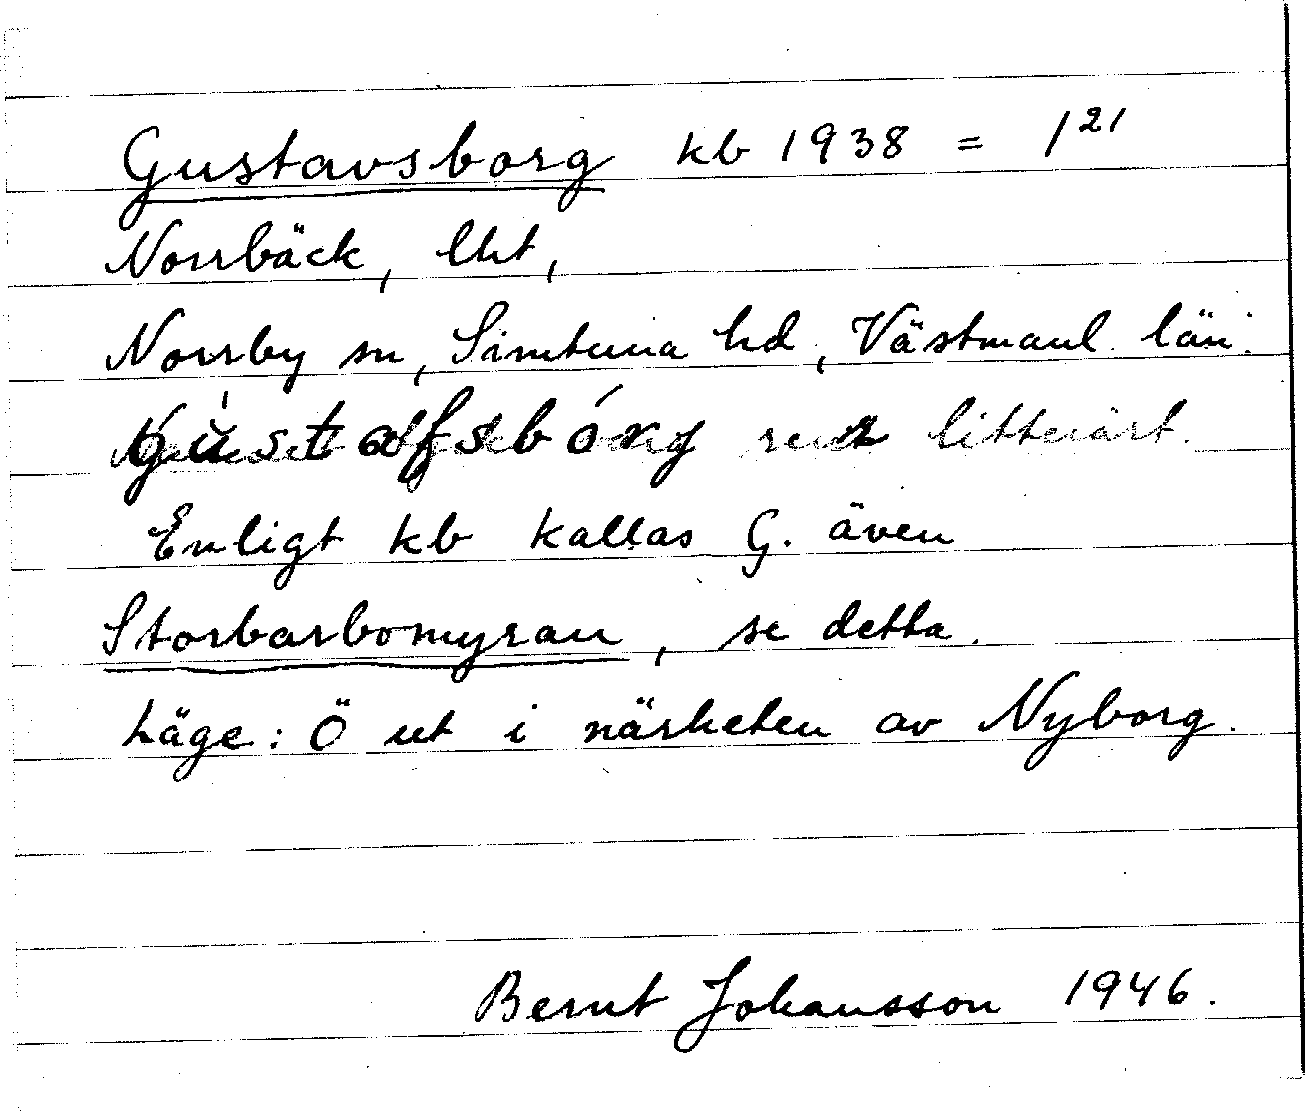 Gustavsborg kb 1938 = 1²¹
Norrbäck, lht,
Norrby sn, Simtuna hd, Västmanl. län.
gùstafsbórg rent litterärt.
Enligt kb kallas G. även
Storbarbomyran, se detta.
Läge: Ö ut i närheten av Nyborg.
Bernt Johansson 1946.